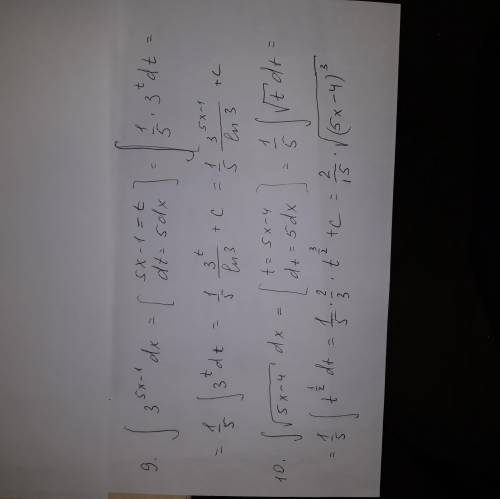 9. ∫ 3^{5x-1} dx = [5x-1=t dt=5dx] = ∫ 1/5 · 3^t dt =
= 1/5 ∫ 3^t dt = 1/5 3^t/ln3 + C = 1/5 3^{5x-1}/ln3 + C
10. ∫ √(5x-4) dx = [t=5x-4 dt=5dx] = 1/5 ∫ √t dt =
= 1/5 ∫ t^{1/2} dt = 1/5 · 2/3 · t^{3/2} + C = 2/15 · √(5x-4)^3